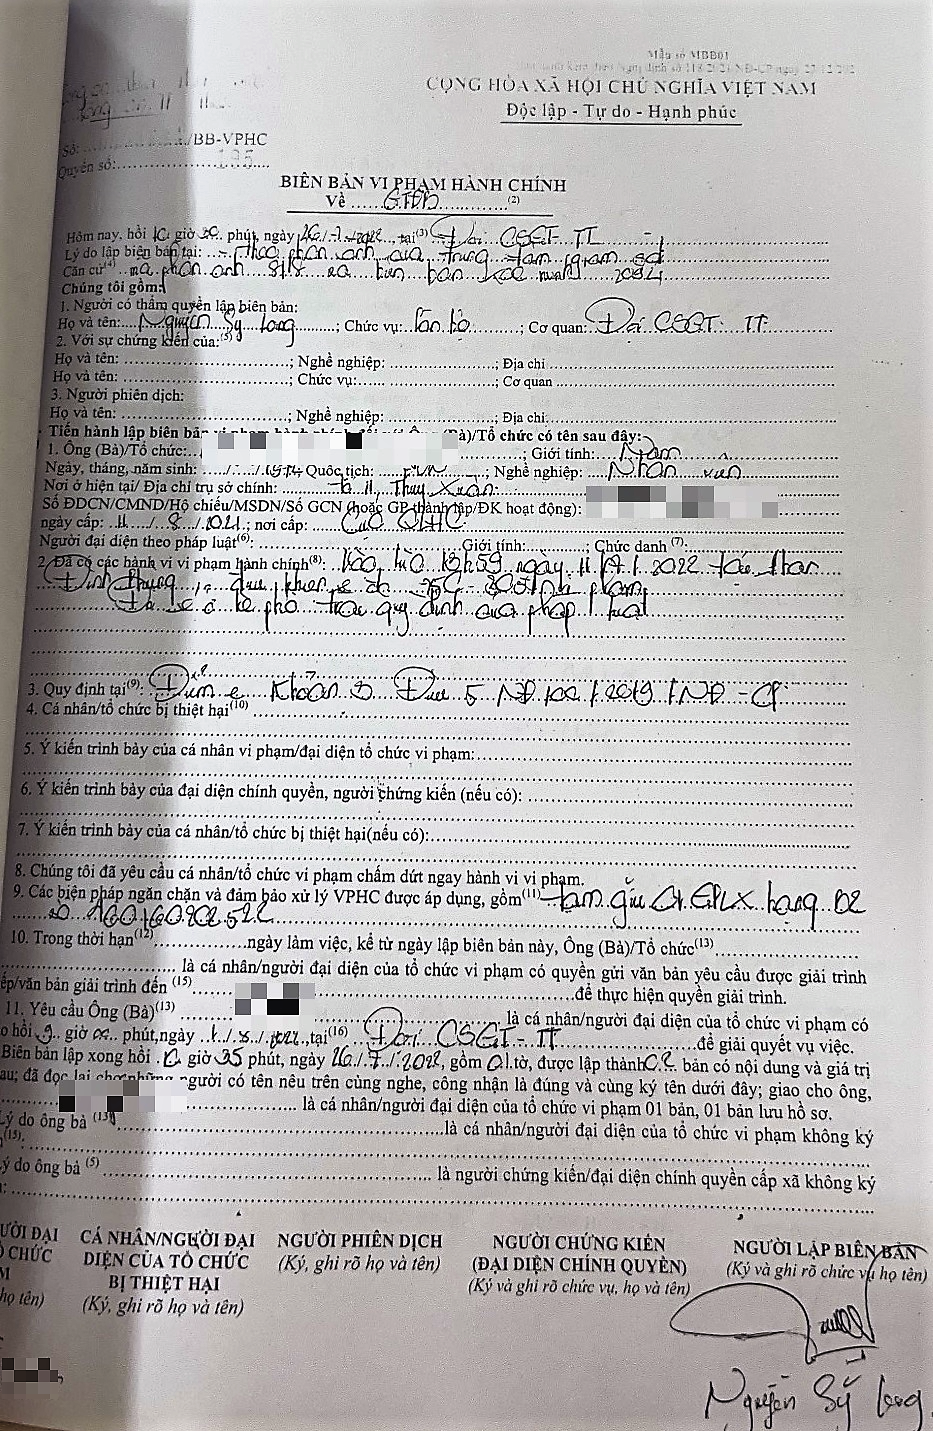 Mẫu số MBB01
CỘNG HÒA XÃ HỘI CHỦ NGHĨA VIỆT NAM
Độc lập - Tự do - Hạnh phúc
Số:............/BB-VPHC
Quyển số:............
BIÊN BẢN VI PHẠM HÀNH CHÍNH
Về ...... GTĐB ............(2)
Hôm nay, hồi 10 giờ 20 phút, ngày 26/7/2022, tại(3) Đội CSGT-TT
Lý do lập biên bản tại: Theo phản ánh của trung tâm giám sát
Căn cứ(4) mã phản ánh và biên bản xác minh
Chúng tôi gồm:
1. Người có thẩm quyền lập biên bản:
Họ và tên: Nguyễn Sỹ Long ; Chức vụ: Cán bộ ; Cơ quan: Đội CSGT-TT
2. Với sự chứng kiến của:(5)
Họ và tên: ............; Nghề nghiệp: ............; Địa chỉ ............
Họ và tên: ............; Chức vụ:............; Cơ quan ............
3. Người phiên dịch:
Họ và tên: ............; Nghề nghiệp: ............; Địa chỉ. ............
Tiến hành lập biên bản (Bà)/Tổ chức có tên sau đây:
1. Ông (Bà)/Tổ chức:............; Giới tính: Nam
Ngày, tháng, năm sinh: .../.../1974 Quốc tịch: ; Nghề nghiệp: Nhân viên
Nơi ở hiện tại/ Địa chỉ trụ sở chính: Tổ 11, Thủy Xuân
Số ĐDCN/CMND/Hộ chiếu/MSDN/Số GCN (hoặc GP thành lập/ĐK hoạt động):
ngày cấp: 11/8/2021; nơi cấp: Cục QLHC
Người đại diện theo pháp luật(6): ............ Giới tính:............; Chức danh (7):............
2. Đã có các hành vi vi phạm hành chính(8): Vào lúc 12h59 ngày 11/7/2022 tại Phan
Đình Phùng, điều khiển xe ôtô 75C- vi phạm:
Đỗ xe ở hè phố trái quy định của pháp luật
3. Quy định tại(9): Điểm e Khoản 3 Điều 5 NĐ 100/2019/NĐ-CP
4. Cá nhân/tổ chức bị thiệt hại(10) ............
5. Ý kiến trình bày của cá nhân vi phạm/đại diện tổ chức vi phạm:............
6. Ý kiến trình bày của đại diện chính quyền, người chứng kiến (nếu có): ............
7. Ý kiến trình bày của cá nhân/tổ chức bị thiệt hại(nếu có):............
8. Chúng tôi đã yêu cầu cá nhân/tổ chức vi phạm chấm dứt ngay hành vi vi phạm.
9. Các biện pháp ngăn chặn và đảm bảo xử lý VPHC được áp dụng, gồm(11) tạm giữ 01 GPLX hạng B2
số 460160202522
10. Trong thời hạn(12)............ngày làm việc, kể từ ngày lập biên bản này, Ông (Bà)/Tổ chức(13)............
............ là cá nhân/người đại diện của tổ chức vi phạm có quyền gửi văn bản yêu cầu được giải trình
ếp/văn bản giải trình đến (15)............để thực hiện quyền giải trình.
11. Yêu cầu Ông (Bà)(13) ............là cá nhân/người đại diện của tổ chức vi phạm có
o hồi 9 giờ 00 phút, ngày 1/8/2022, tại(16) Đội CSGT-TT để giải quyết vụ việc.
Biên bản lập xong hồi 10 giờ 35 phút, ngày 26/7/2022, gồm 01 tờ, được lập thành 02 bản có nội dung và giá trị
au; đã đọc lại cho những người có tên nêu trên cùng nghe, công nhận là đúng và cùng ký tên dưới đây; giao cho ông,
............ là cá nhân/người đại diện của tổ chức vi phạm 01 bản, 01 bản lưu hồ sơ.
Lý do ông bà (13)............là cá nhân/người đại diện của tổ chức vi phạm không ký
(15):............
ý do ông bà (5)............ là người chứng kiến/đại diện chính quyền cấp xã không ký
............
ƯỜI ĐẠI
Ổ CHỨC
M
họ tên)
CÁ NHÂN/NGƯỜI ĐẠI
DIỆN CỦA TỔ CHỨC
BỊ THIỆT HẠI
(Ký, ghi rõ họ và tên)
NGƯỜI PHIÊN DỊCH
(Ký, ghi rõ họ và tên)
NGƯỜI CHỨNG KIẾN
(ĐẠI DIỆN CHÍNH QUYỀN)
(Ký và ghi rõ chức vụ, họ và tên)
NGƯỜI LẬP BIÊN BẢN
(Ký và ghi rõ chức vụ họ tên)
Nguyễn Sỹ Long